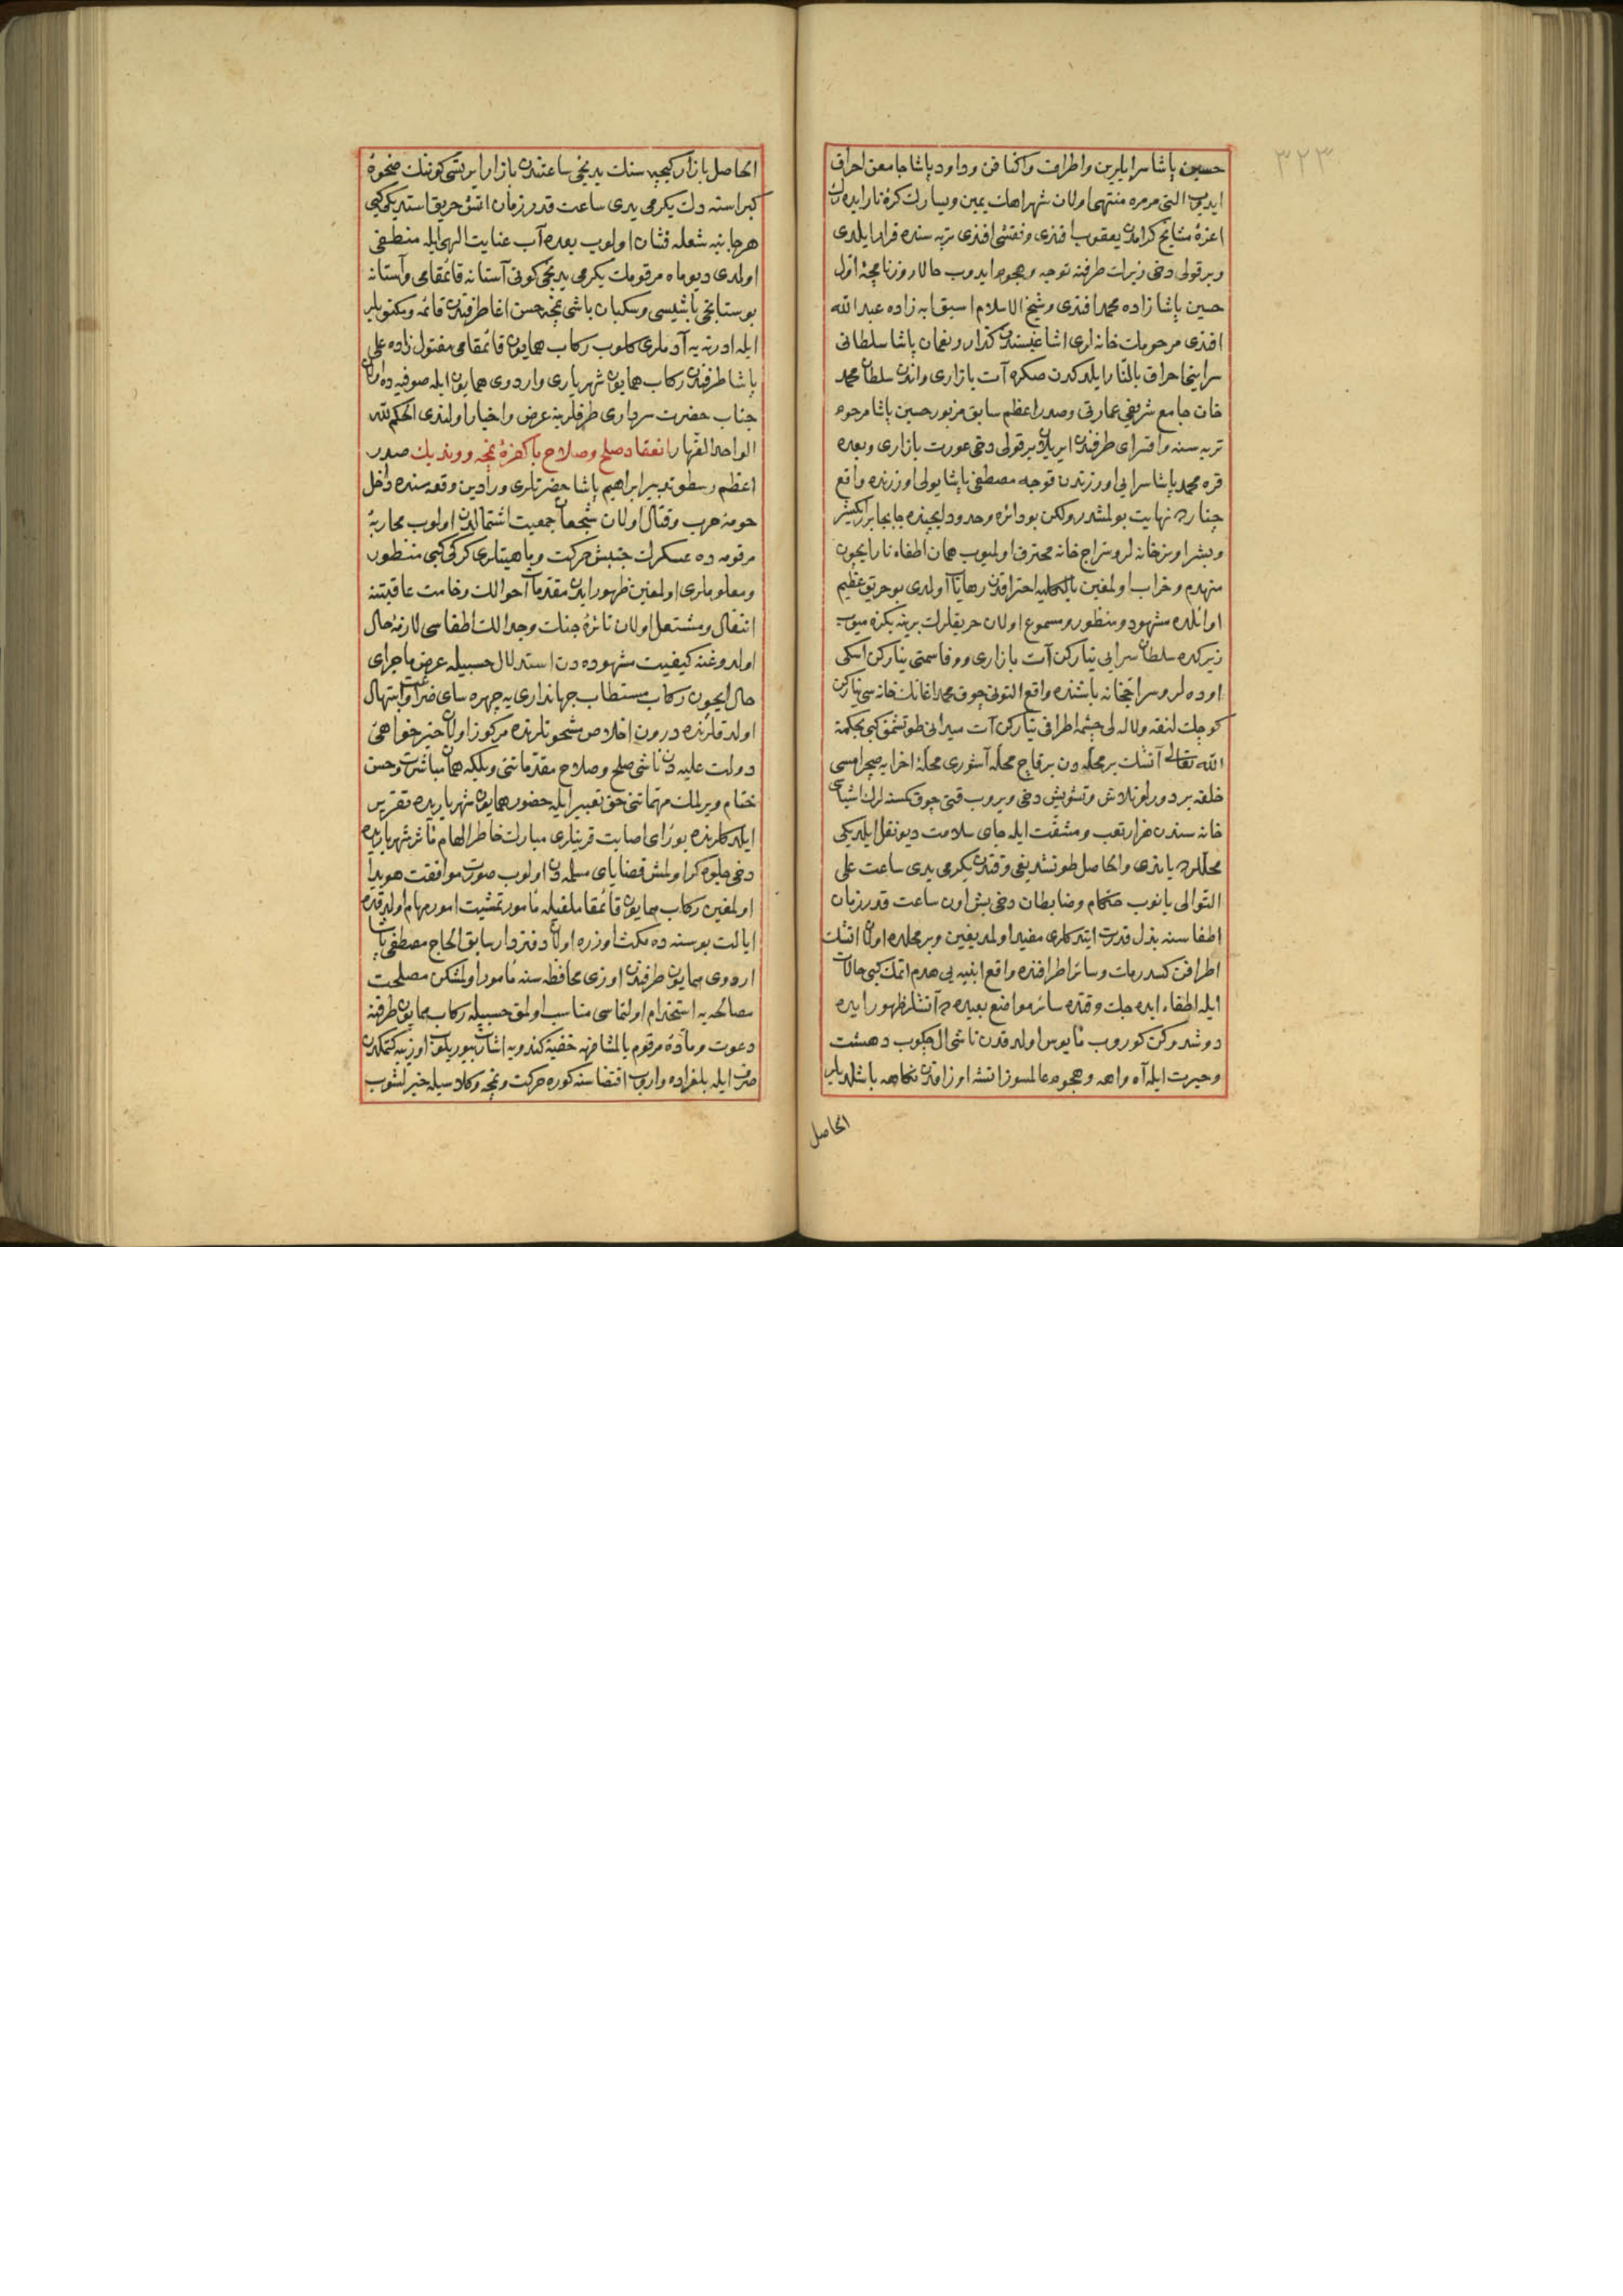 ٣٢٣
حسین پاشا سرایلرین واطراف واکنافن وداود پاشا جامعن احراق
ایدوب التی مرمره منتهی اولان شهراهك یمین ویسارك كرۀ نار ایدەرك
اعزۀ مشایخ كرامدن یعقوب افندی ونقشی افندی تربه سنده قرار ایلدی
وبر قولی دخی زیرك طرفنه توجه وهجوم ایدوب حالا روزنامچۀ اول
حسین پاشا زاده محمد افندی وشیخ الاسلام اسبق ابه زاده عبد الله
افندی مرحومك خانه لری اشاغیسندن كذار ونعمان پاشا سلطانی
سراینی احراق بالنار ایلدكدن صكره آت بازاری واندن سلطان محمد
خان جامع شریفی عمارتی وصدر اعظم سابق مزبور حسین پاشا مرحوم
تربه سنه واقسرای طرفندن ایریلان بر قولی دخی عورت بازاری وبعده
قره محمد پاشا سرایی اورزندن قوجه مصطفی پاشا یولی اوزرنده واقع
چنارده نهایت بولمشدر ولكن بو دائره وحدود ایچنده جابجا برر ایكیشر
وبشر اونر خانه لر وسراج خانه محترق اولمیوب همان اطفاء نار ایچون
منهدم وخراب اولمغین بالكلیه احتراقدن رهایاب اولدی بو حریق عظیم
اوائلده مشهود ومنظور ومسموع اولان حریقلرك برینه بكزه میوب
زیركده سلطان سرایی یناركن آت بازاری ووفا سمتی یناركن اسكی
اوده لر وسراجخانه باشنده واقع التونی چوق محمد اغانك خانه سی یناركن
كوچك لنقه ولاله لی چشمه اطرافی یناركن آت میدانی طوتشمق كبی بحكمة
الله تعالی آتشك بر محله دن بر قاچ محله آشوری محلۀ اخرایه صچرامسی
خلقه بر دورلو تلاش وتشویش دخی ویروب قتی چوق كمسنه لرك اشیای
خانه سندن هزار تعب ومشقت ایله جای سلامت دیو نقل ایلدیكی
محللرده یاندی والحاصل طوتشدیغی وقتدن یكرمی یدی ساعت علی
التوالی یانوب حكام وضابطان دخی بش اون ساعت قدر زمان
اطفاسنه بذل قدرت ایتدكلری مفید اولمدیغین وبر محلده اولان اتشك
اطرافن كسدرمك وسائر اطرافنده واقع ابنیه یی هدم ایتمك كبی حالات
ایله اطفاء ایده جك وقتده سائر مواضع بعیده ده آتشلر ظهور ایده
دوشدوكن كوروب مأیوس اولدقدن ناشی ال چكوب دهشت
وحیرت ایله آه واهه وهجوم عالمسوز اتشه اوزاقدن نكاهه باشلدیلر
الحاصل
الحاصل بازار كیجه سنك یدنجی ساعتندن بازار ایرتسی كوننك ضحوۀ
كبراسنه دك یكرمی یدی ساعت قدر زمان اتش حریق استدیكی كبی
هر جانبه شعله فشان اولوب بعده آب عنایت الهی ایله منطفی
اولدی دیو ماه مرقومك یكرمی یدنجی كونی آستانه قائمقامی وآستانه
بوستانجی باشیسی وسكبان باشی نجه حسن اغا طرفندن قائمه ومكتوبلر
ایله ادرنه یه آدملری كلوب ركاب همایون قائمقامی مقتول زاده علی
پاشا طرفندن ركاب همایون شهریاری واردوی همایون ایله صوفیه ده اولان
جناب حضرت سرداری طرفلرینه عرض واخبار اولندی الحكم لله
الواحد القهار انعقاد صلح وصلاح با كفرۀ نمچه ووندیك صدر
اعظم رسطو تدبیر ابراهیم پاشا حضرتلری ورادین وقعه سنده داخل
حومۀ حرب وقتال اولان شجعان جمعیت اشتمالدن اولوب محاربۀ
مرقومه ده عسكرك جنبش حركت وماهیتلری كركی كبی منظور
ومعلوملری اولمغین ظهور ایدن مقدمات احوالك وخامت عاقبتنه
انتقال ومشتعل اولان نائرۀ جنك وجدالك اطفاسی لازمۀ حال
اولدوغنه كیفیت مشهوده دن استدلال حسبیله عرض ماجرای
حال ایچون ركاب مستطاب جهانداری یه چهره سای ضراعت وابتهال
اولدقلرنده درون اخلاص مشحونلرنده مركوز اولان خیر خواهی
دولت علیه دن ناشی صلح وصلاح مقدماتنی وبلكه همان مباشرت وحسن
ختام ویرلمك مهماتنی حق تعبیر ایله حضور همایون شهریاریده تقریر
ایلدكلرنده بو رای اصابت قرینلری مبارك خاطر الهام مآثر شهریاریده
دخی جلوه كر اولمش قضایای مسلمه دن اولوب صورت موافقت هویدا
اولمغین ركاب همایون قائمقاملغیله مأمور تمشیت امور مهام اولدقده
ایالت بوسنه ده مكث اوزره اولان دفتردار سابق الحاج مصطفی پاشا
اردوی همایون طرفندن اوزی محافظه سنه مأمور اولمشكن مصلحت
مصالحه یه استخدام اولنماسی مناسب اولمق حسبیله ركاب همایون طرفنه
دعوت ومادۀ مرقوم بالمشافهه خفیة كندویه اشارت بیوریلوب اوزییه كتمكدن
صرف ایله بلغراده واروب اقتضاسنه كوره حركت ونمچه وكلاسیله خبرلشوب